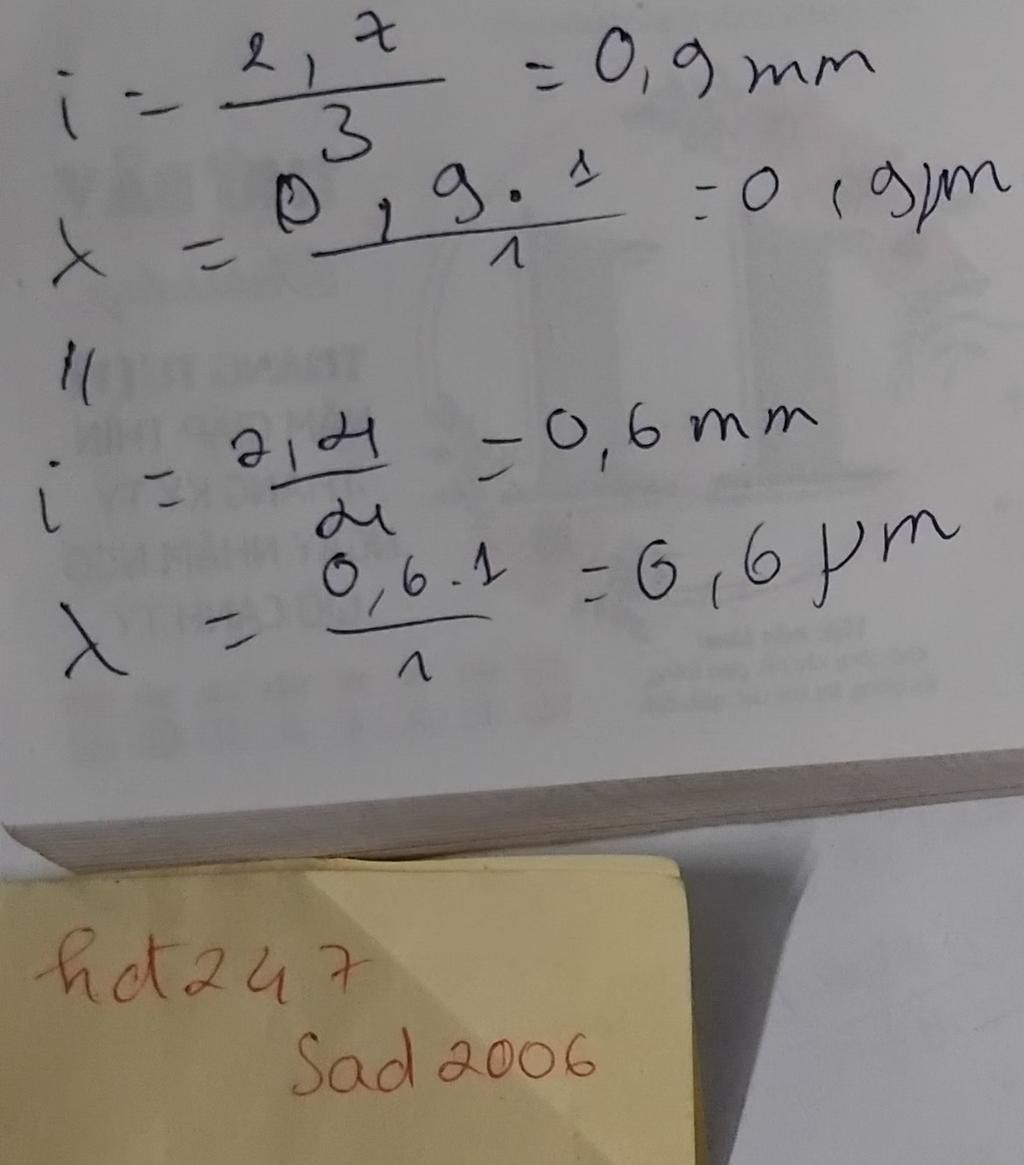 i = 2,7/3 = 0,9 mm
λ = 0,9.1/1 = 0,9 µm
11
i = 2,4/4 = 0,6 mm
λ = 0,6.1/1 = 0,6 µm
hdt247
Sad2006